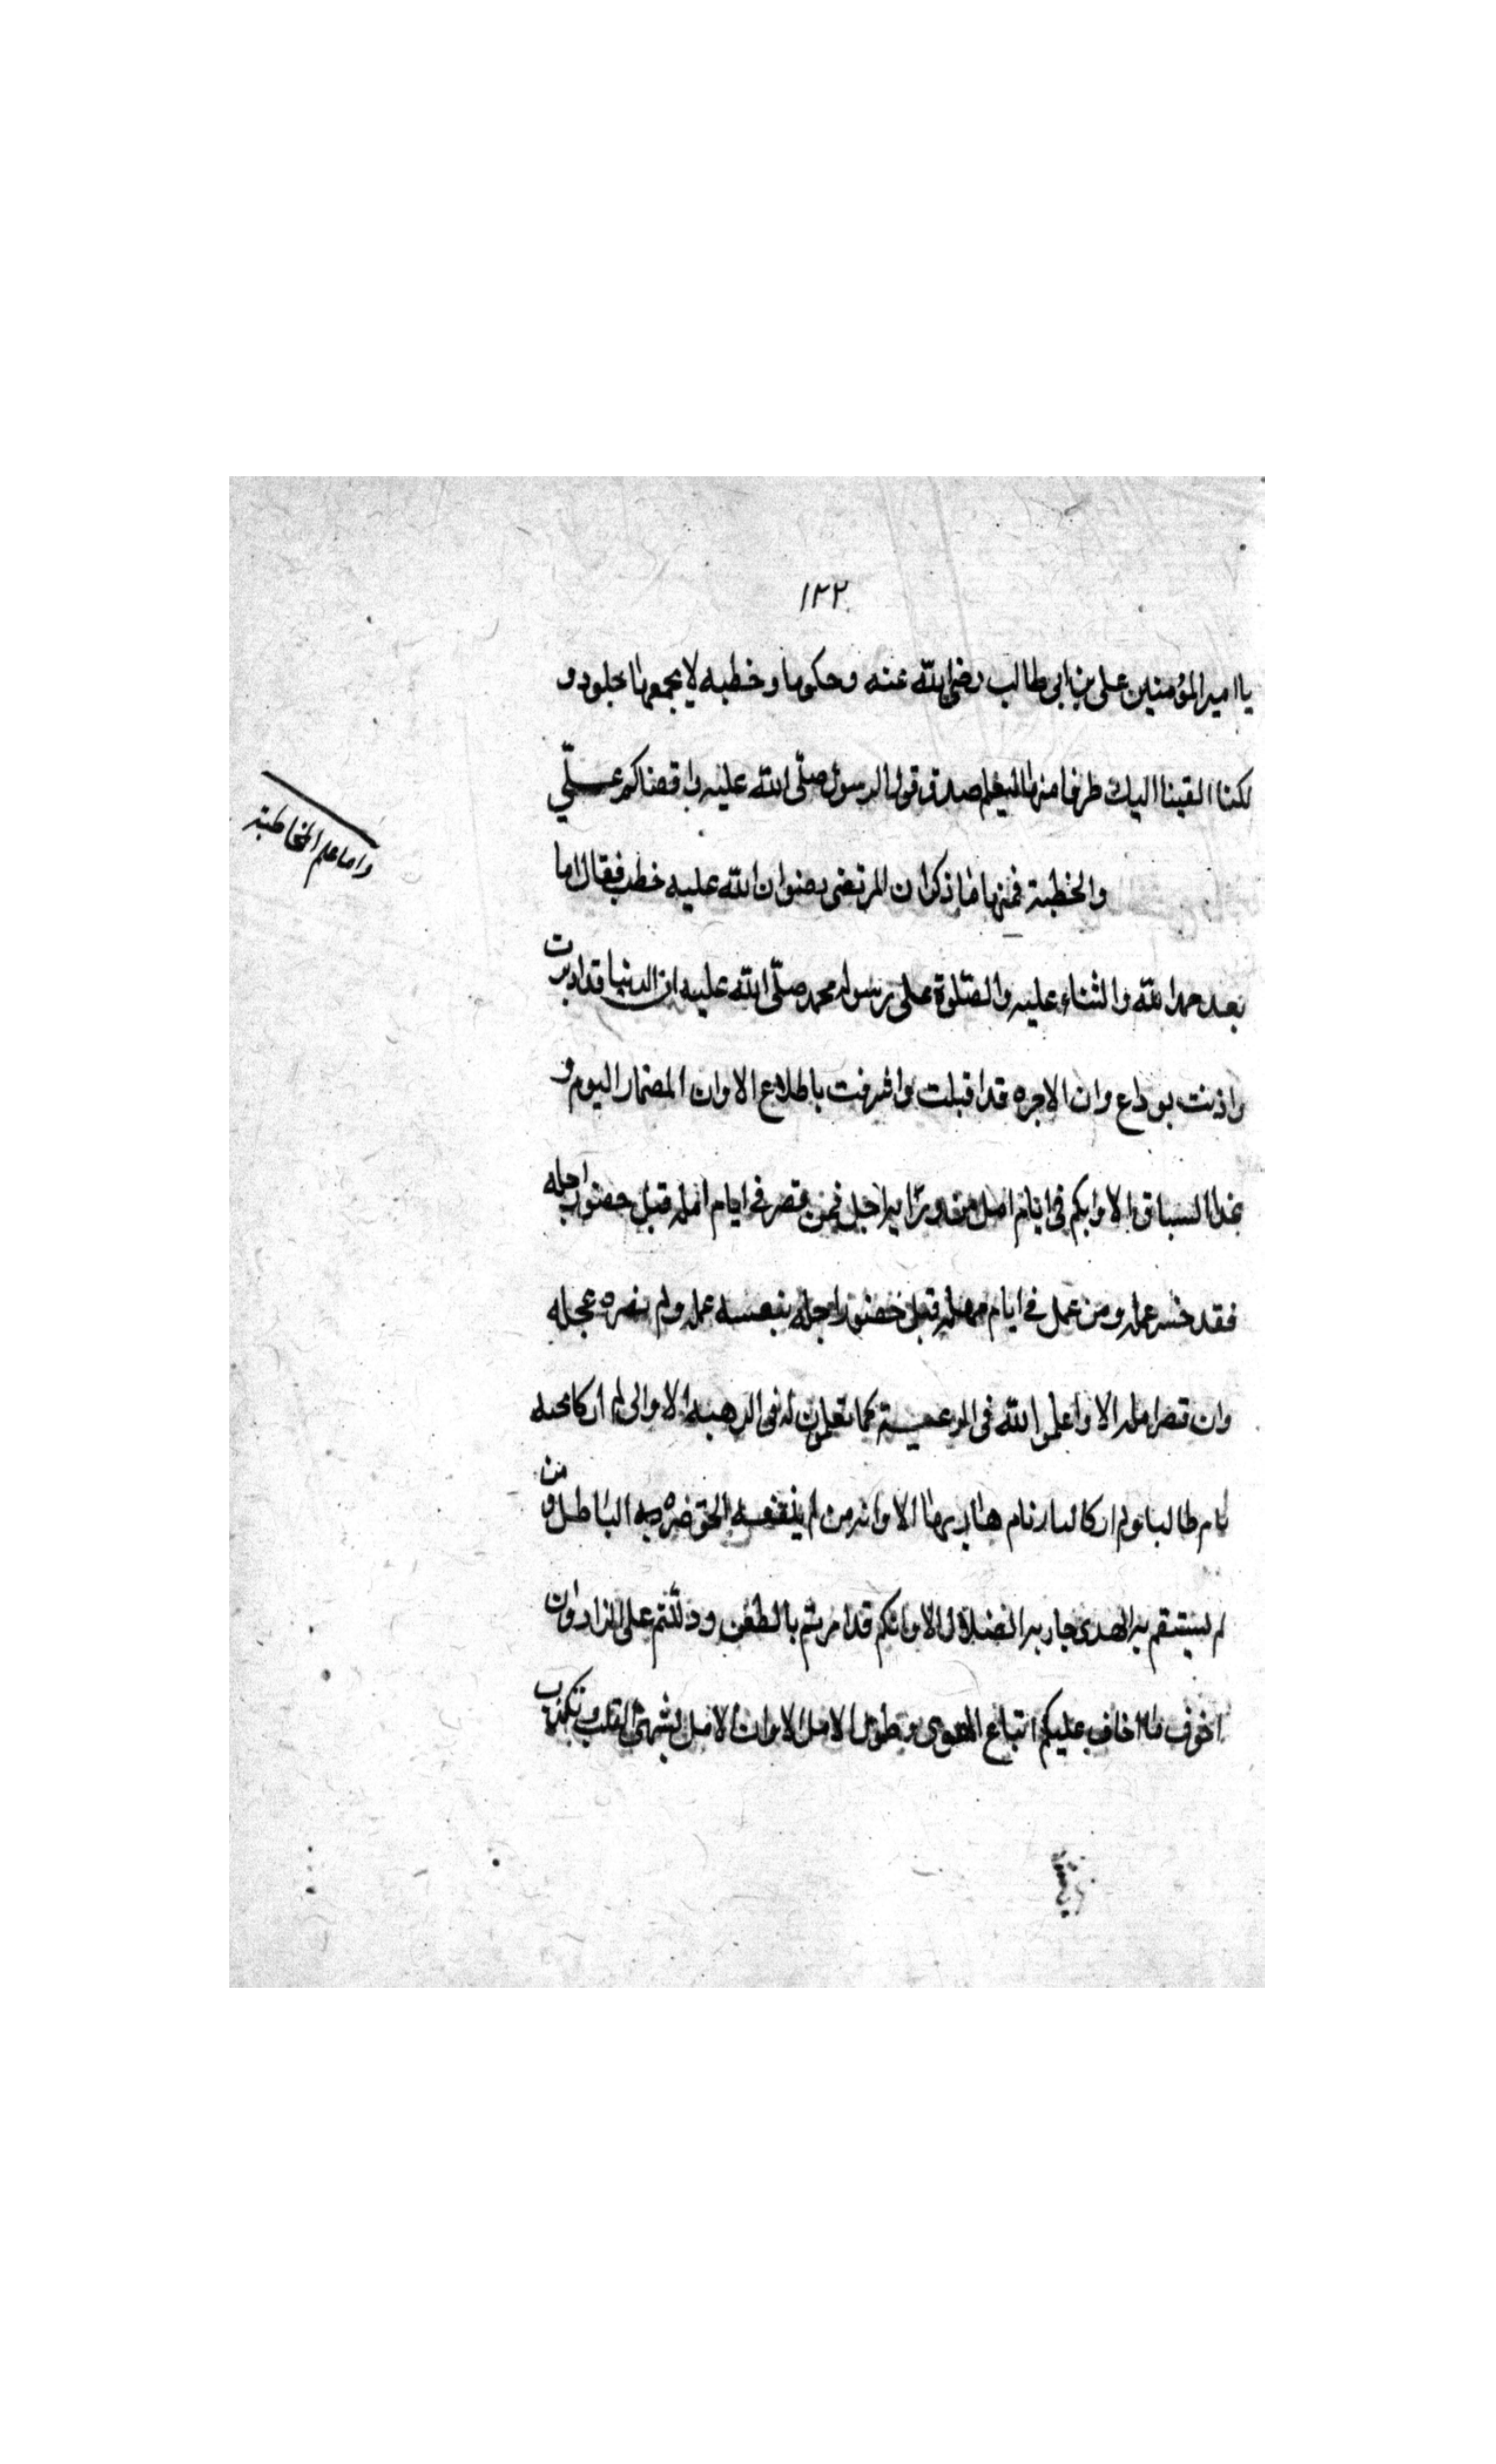 ١٢٢
يا امير المؤمنين على بن ابى طالب رضى الله عنه وحكوما وخطبه لا يجمعها مجلود و
لكنا القينا اليك طرفا منها ليعلم صدق قول الرسول صلّى الله عليه واقضاكم عـــلّي
واما علم المخاطبة
والخطبة فمنها ما ذكر ان المرتضى رضوان الله عليه خطب فقال اما
بعد حمد الله والثناء عليه والصّلوة على رسوله محمد صلّى الله عليه ان الدنيا قد ادبرت
واذنت بوداع وان الاخره قد اقبلت واشرفت باطلاع الا وان المضمار اليوم و
غدا السباق الا وانكم فى ايام امل من ورائه اجل فمن قصر فى ايام امله قبل حضور اجله
فقد خسر عمله ومن عمل فى ايام مهله قبل حضور اجله نفعه عمله ولم يضره عجله
وان قصر امله الا واعملوا لله فى الرغبة كما تعملون له فى الرهبه الا وانى لم ار كالجنه
نام طالبها ولم ار كالنار نام هاربها الا وانه من لم ينفعه الحق ضره الباطل و من
لم يستقم به الهدى جار به الضلال الا وانكم قد امرتم بالظعن ودللتم على الزاد وان
اخوف ما اخاف عليكم اتباع الهوى وطول الامل الا وان الامل القلب و